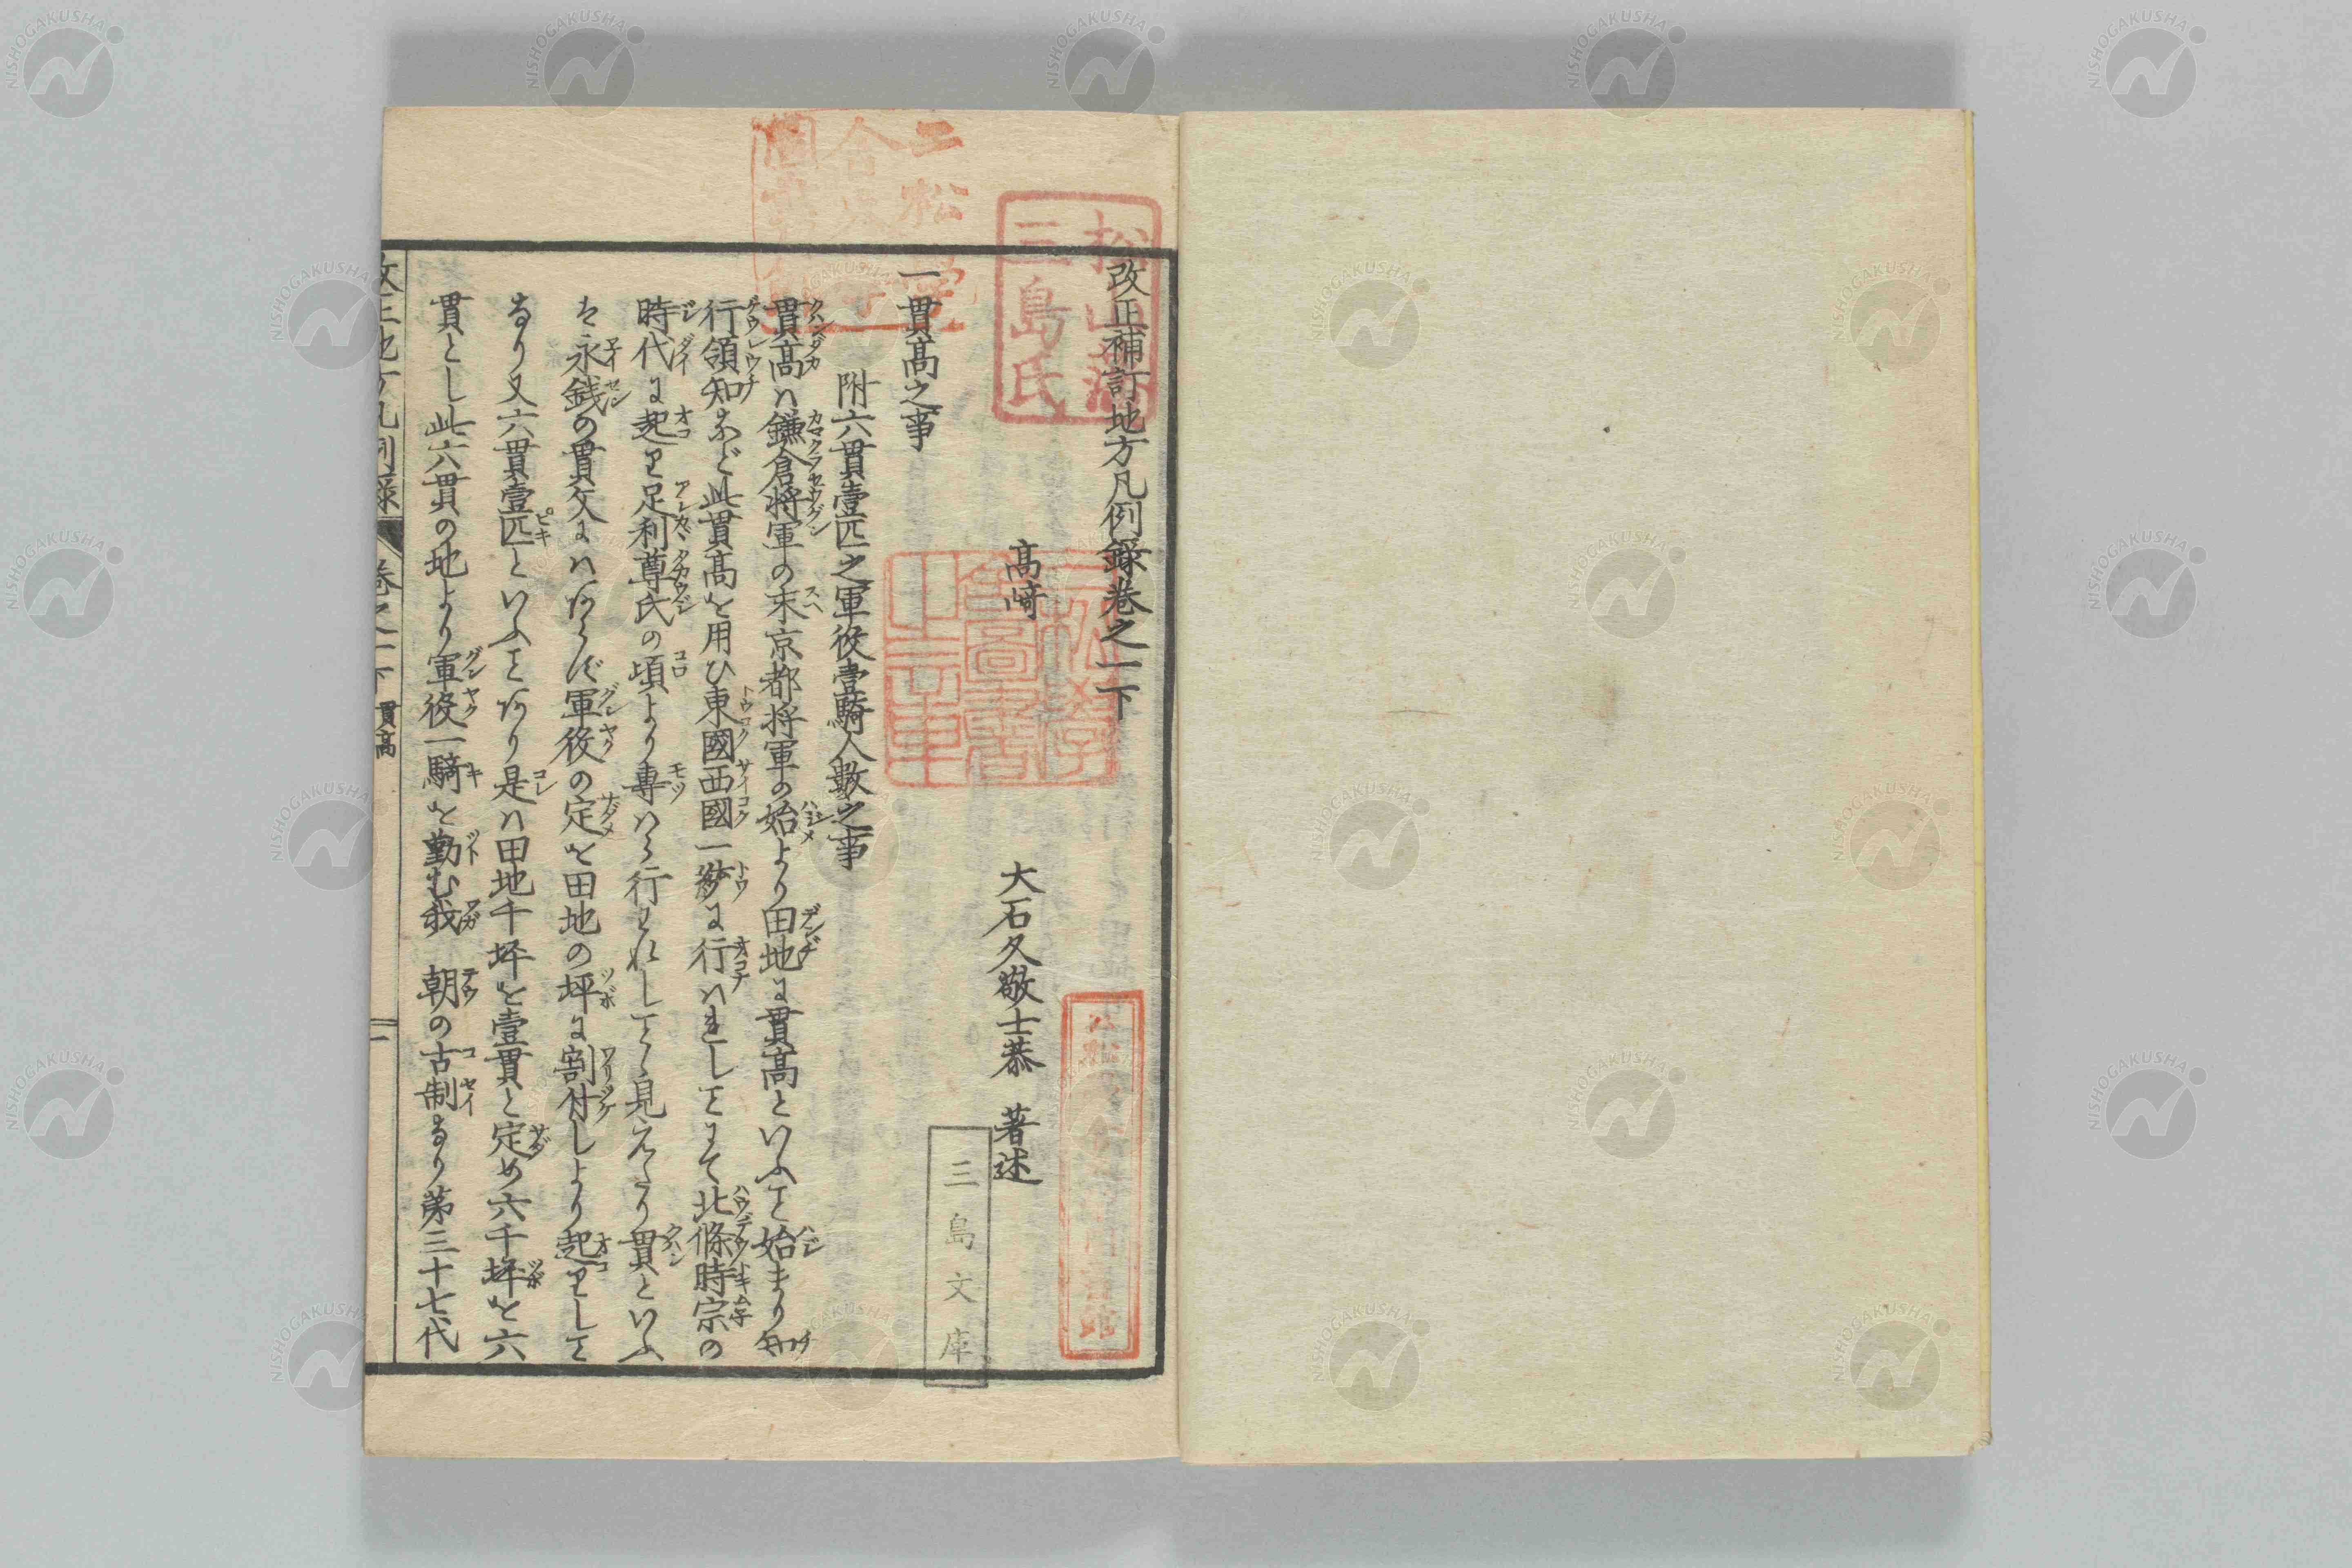 改正補訂地方凡例録巻之一下
高崎
大石久敬士恭 著述
一貫高之事
附六貫壹匹之軍役壹騎人数之事
貫高ハ鎌倉将軍の末京都将軍の始より田地に貫高といふ事始まり知
行領知など此貫高を用ひ東國西國一同に行ハれし事にて北條時宗の
時代に起り足利尊氏の頃より専ハら行はれし事と見えたり貫といふ
は永銭の貫文にハあらず軍役の定を田地の坪に割付しより起りし事
なり又六貫壹匹といふ事あり是ハ田地千坪を壹貫と定め六千坪を六
貫とし此六貫の地より軍役一騎を勤む我 朝の古制なり第三十七代
改正地方凡例録 巻之一下 貫高 一
松山藩
三島氏
三島文庫
NISHOGAKUSHA